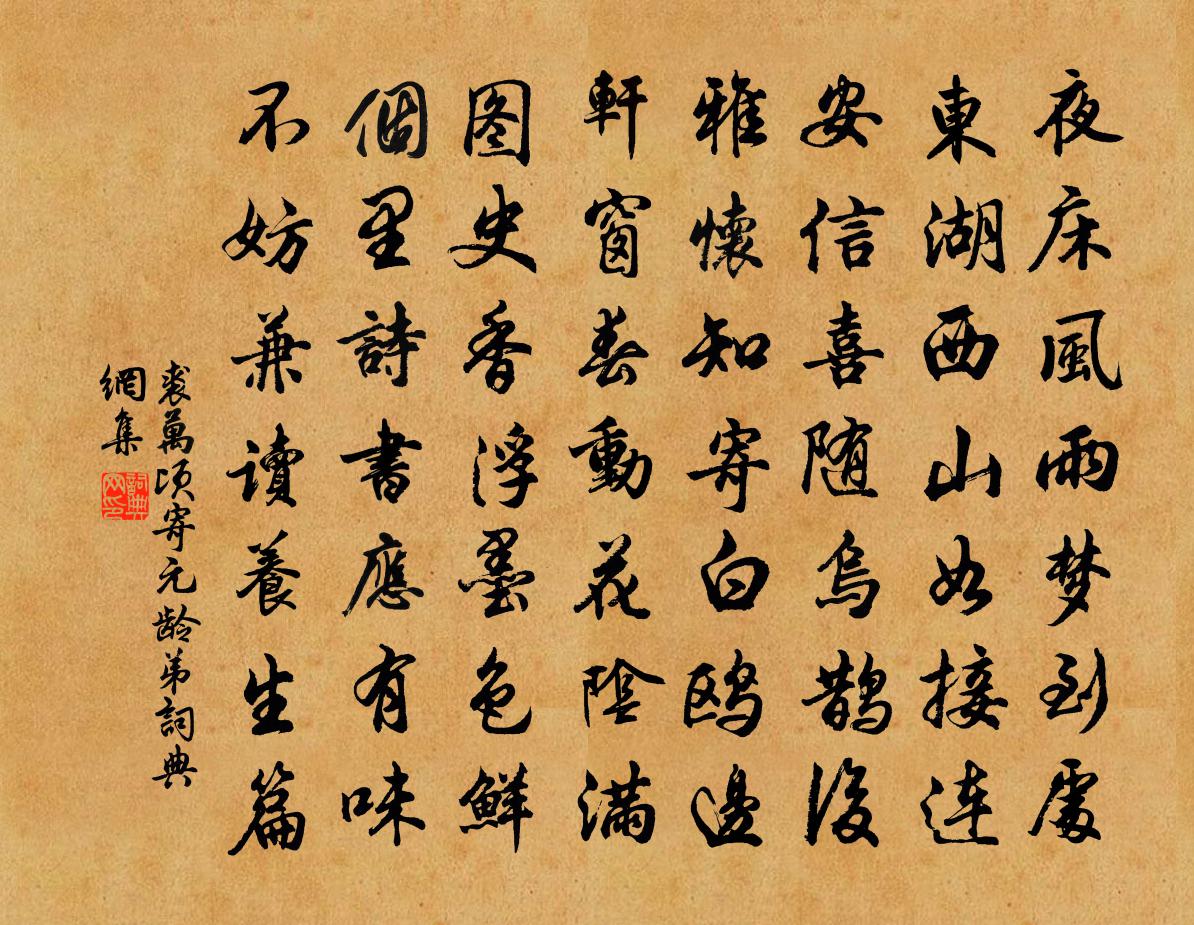 夜床風雨梦到處
東湖西山如接連
安信喜随烏鹊後
雅懷知寄白鸥邊
軒窗春動花陰滿
图史香浮墨色鮮
個里詩書應有味
不妨兼讀養生篇
裘萬頃寄元龄弟詞典
網集
詞典
网印